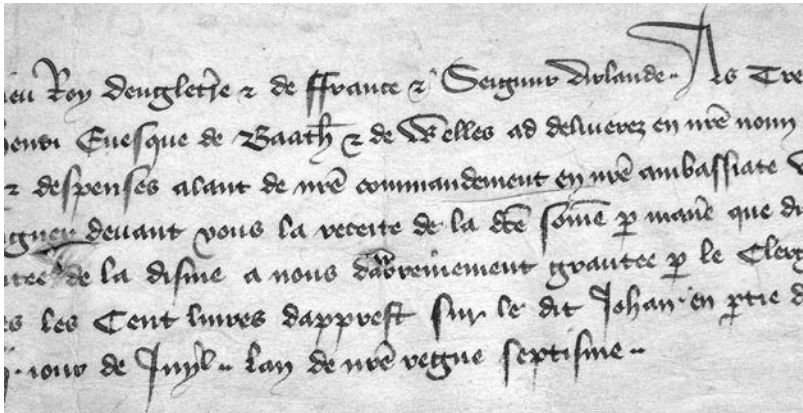 ieu Roy dengletre & de ffrance & Seignur Dirlande As Tre
henri Evesque de Baath & de Welles ad deliverez en nr̄e noun
& despenses alant de nr̄e commandement en nr̄e ambassiate
devant vous la receite de la dc̄e som̄e p manēe que
de la disme a nous darreinement grantee p le Clerg
s les Cent livres dapprest sur le dit Johan en ptie d
iour de Juyl lan de nr̄e regne septisme